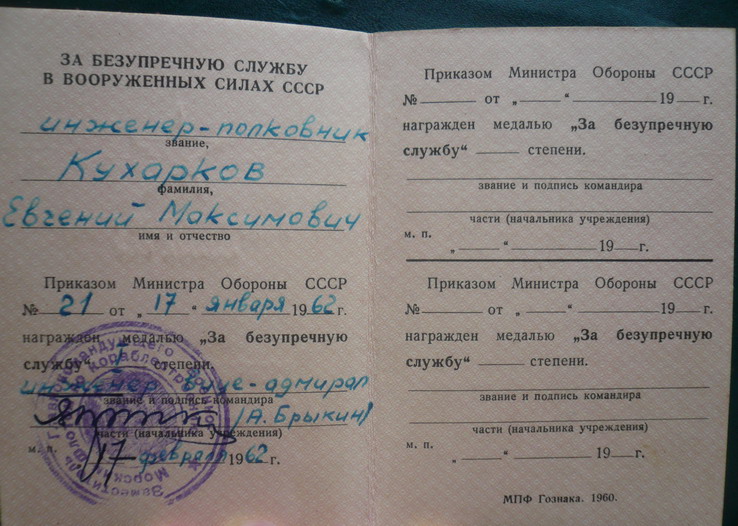 ЗА БЕЗУПРЕЧНУЮ СЛУЖБУ
В ВООРУЖЕННЫХ СИЛАХ СССР
инженер-полковник
звание,
Кухарков
фамилия,
Евгений Максимович
имя и отчество
Приказом Министра Обороны СССР
№ 21 от „17" января 1962 г.
награжден медалью „За безупречную
службу" I степени.
инженер вице-адмирал
звание и подпись командира
(А. Брыкин)
части (начальника учреждения)
м. п.
„17" февраля 1962 г.
Приказом Министра Обороны СССР
№ от „ " 19 г.
награжден медалью „За безупречную
службу" степени.
звание и подпись командира
части (начальника учреждения)
м. п.
„ " 19 г.
Приказом Министра Обороны СССР
№ от „ " 19 г.
награжден медалью „За безупречную
службу" степени.
звание и подпись командира
части (начальника учреждения)
м. п.
„ " 19 г.
МПФ Гознака. 1960.